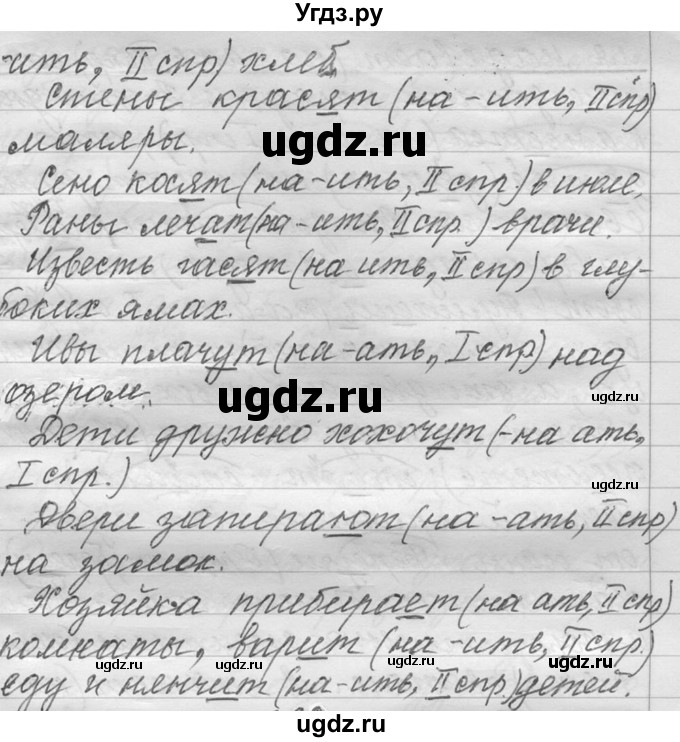 Угдз.ру
-ить, II спр) хлеб.
Стены красят (на -ить, II спр)
маляры.
Сено косят (на -ить, II спр.) в июле.
Раны лечат (на -ить, II спр.) врачи.
Известь гасят (на ить, II спр) в глу-
боких ямах.
Ивы плачут (на -ать, I спр) над
озером.
Дети дружно хохочут (-на ать,
I спр.)
Двери запирают (на -ать, II спр)
на замок.
Хозяйка прибирает (на ать, II спр)
комнаты, варит (на -ить, II спр.)
еду и нянчит (на -ить, II спр.) детей.
ugdz.ru
ugdz.ru
ugdz.ru
ugdz.ru
ugdz.ru
ugdz.ru
ugdz.ru